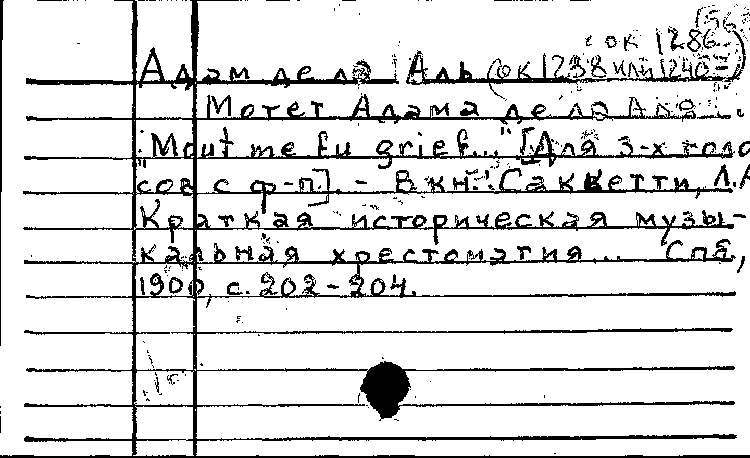 56
ок 1286
Адам де ла Аль (ок 1238 или 1240-
Мотет Адама де ла Аля
"Mout me fu grief..." [Для 3-х голо
сов с ф-п]. - В кн.: Саккетти, Л.А
Краткая историческая музы-
кальная хрестоматия... Спб,
1900, с. 202-204.